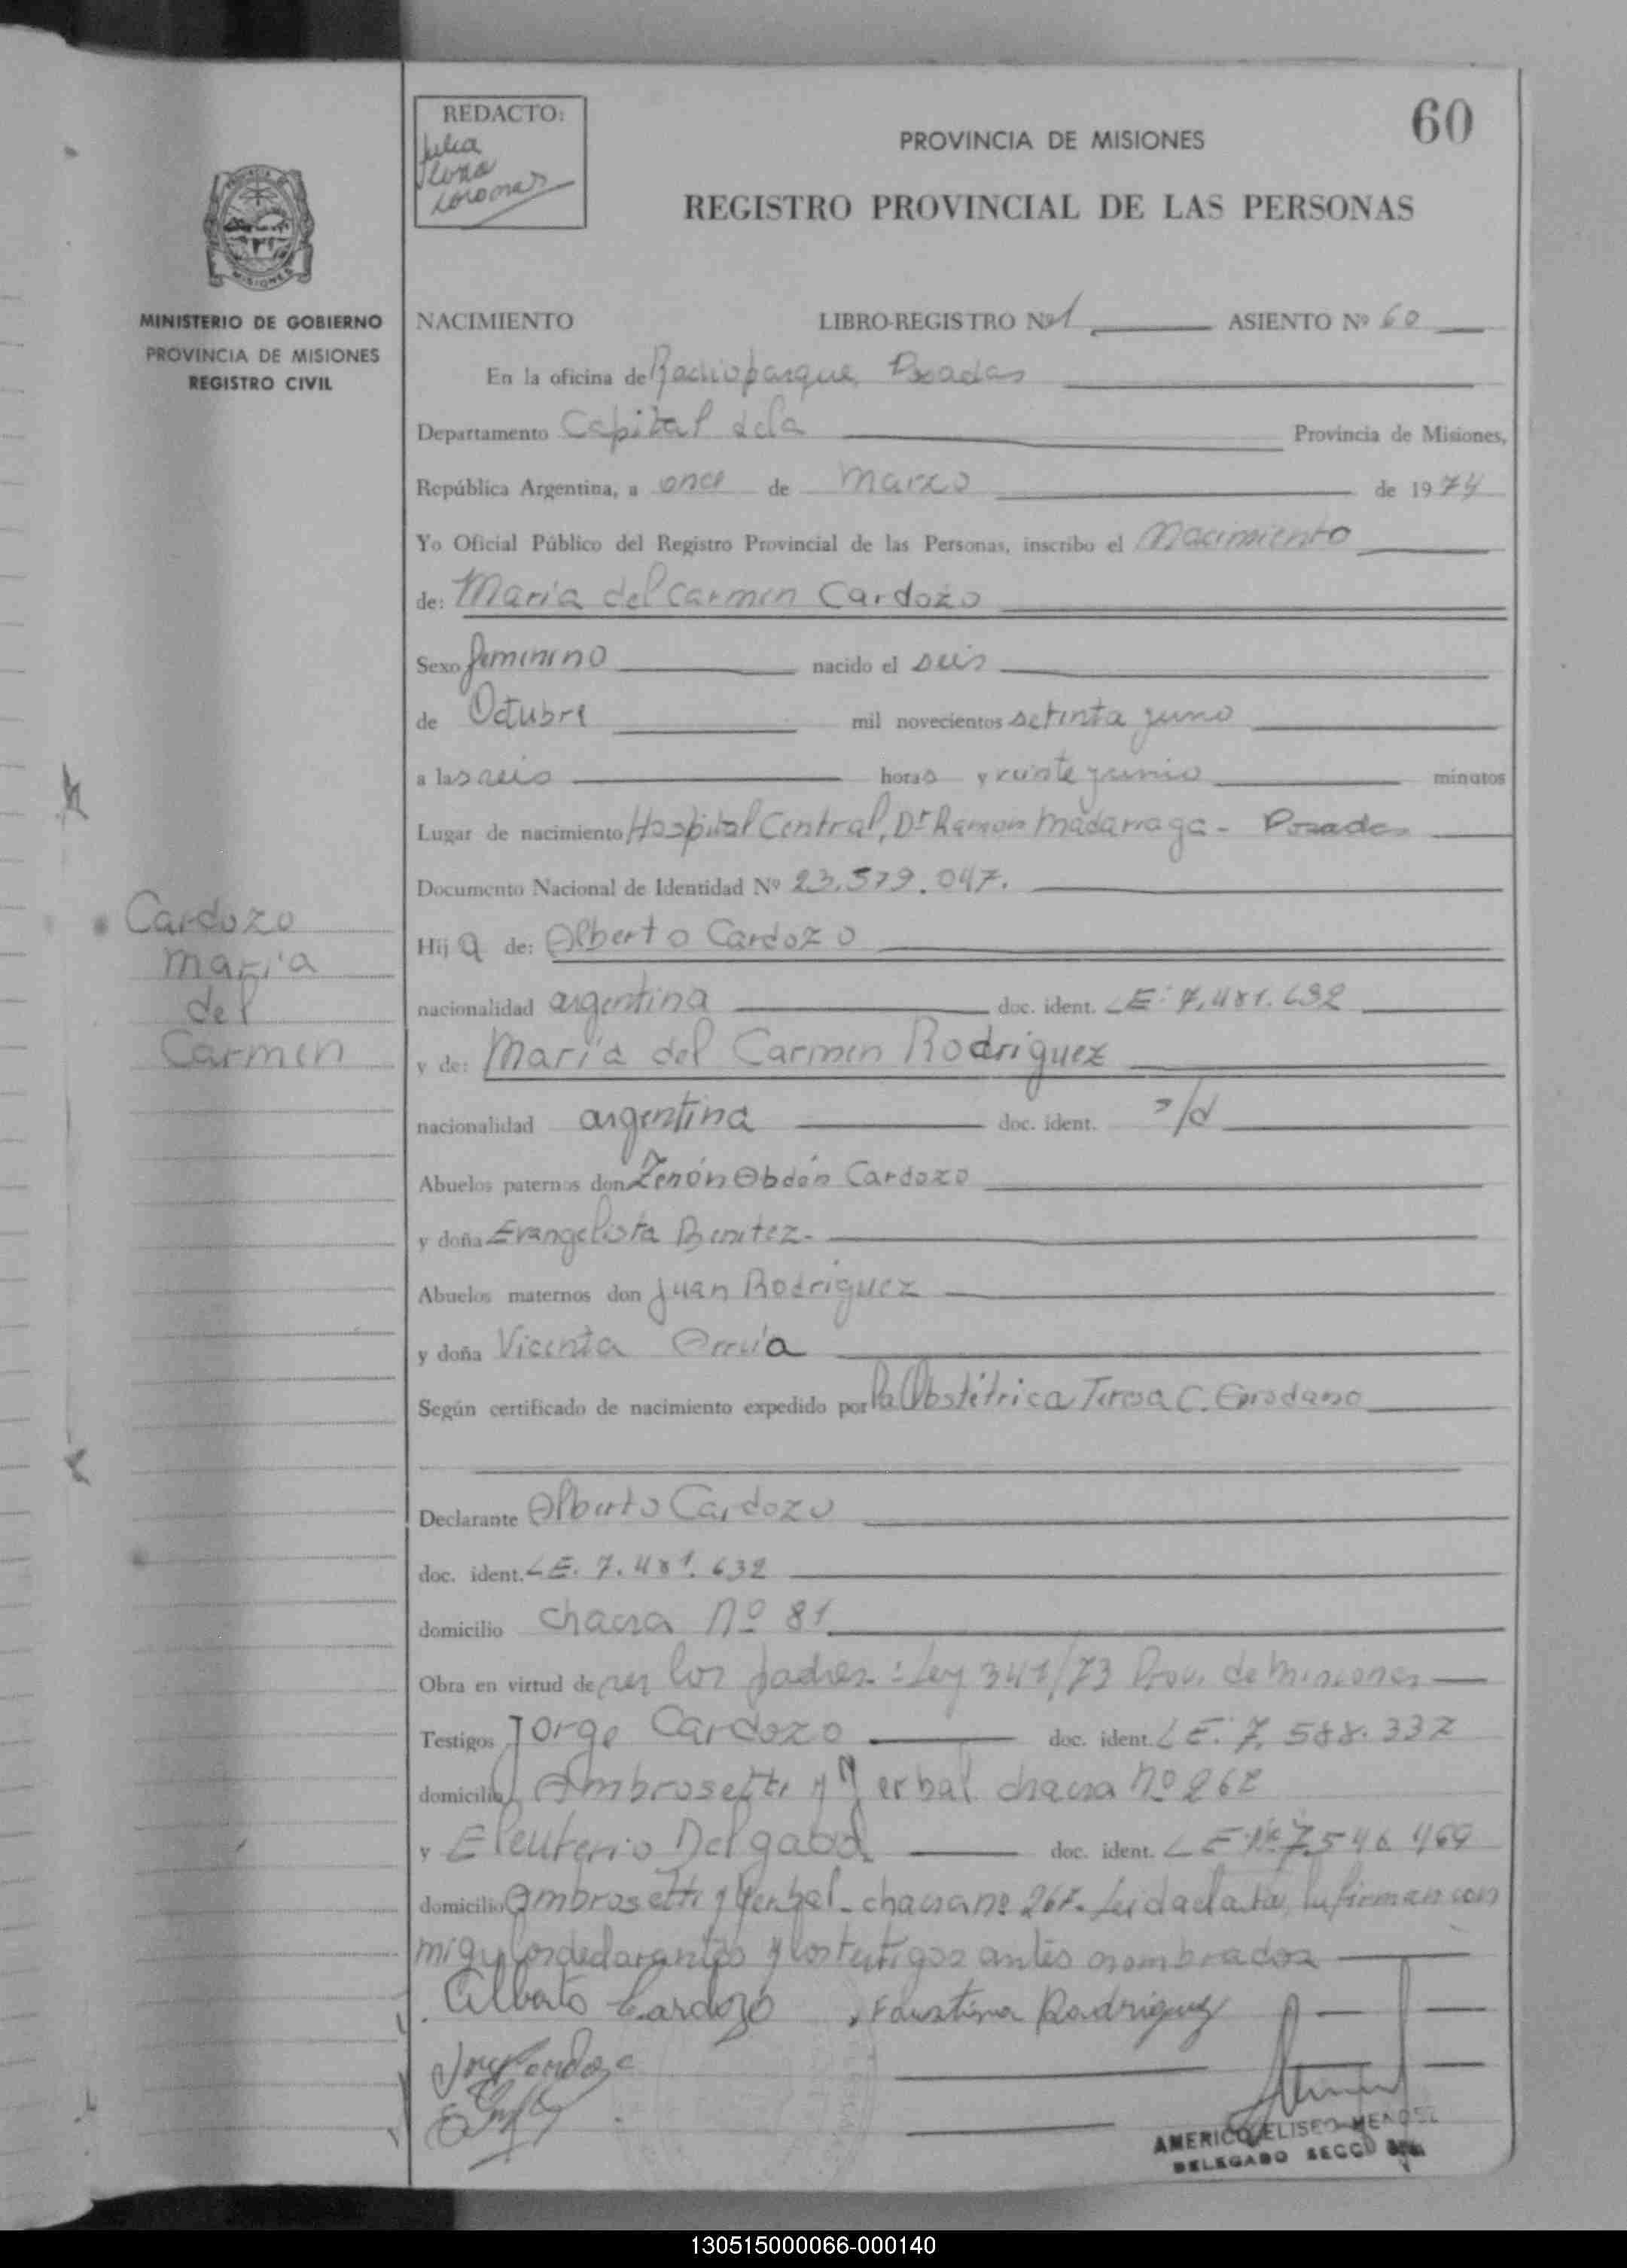 REDACTO:
Julia
60
PROVINCIA DE MISIONES
REGISTRO PROVINCIAL DE LAS PERSONAS
MISIONES
MINISTERIO DE GOBIERNO
PROVINCIA DE MISIONES
REGISTRO CIVIL
NACIMIENTO LIBRO-REGISTRO Nº 1 ASIENTO Nº 60
En la oficina de Radioparque Posadas
Departamento Capital dela Provincia de Misiones,
República Argentina, a once de Marzo de 1974
Yo Oficial Público del Registro Provincial de las Personas, inscribo el Nacimiento
de: Maria del Carmen Cardozo
Sexo femenino nacido el seis
de Octubre mil novecientos setenta yuno
a las seis horas y veinte minutos
Lugar de nacimiento Hospital Central, Dr Ramon Madarraga - Posadas
Documento Nacional de Identidad Nº 23.579.047.
Hija de: Alberto Cardozo
nacionalidad argentina doc. ident. LE: 7,481.632
y de: Maria del Carmen Rodriguez
nacionalidad argentina doc. ident. s/d
Abuelos paternos don Zenón Obdón Cardozo
y doña Evangelista Benitez.
Abuelos maternos don Juan Rodriguez
y doña Vicenta
Según certificado de nacimiento expedido por la Obstétrica Teresa C.
Declarante Alberto Cardozo
doc. ident. LE. 7.481.632
domicilio chacra Nº 81
Obra en virtud de ser los padres: Ley 341/73 Prov. de Misiones
Testigos Jorge Cardozo doc. ident. LE. 7. 588.337
domicilio Ambrosetti y Yerbal chacra nº 267
y Eleuterio Delgado doc. ident. LE Nº 7.546.469
domicilio Ambrosetti y Yerbal - chacra nº 267. Leida el acta, la firman con
migo los declarantes y los testigos antes nombrados
Alberto Cardozo Faustina Rodriguez
Jorge Cardozo
AMERICO ELISEO MENDEZ
DELEGADO SECCO
Cardozo
maria
del
Carmen
130515000066-000140